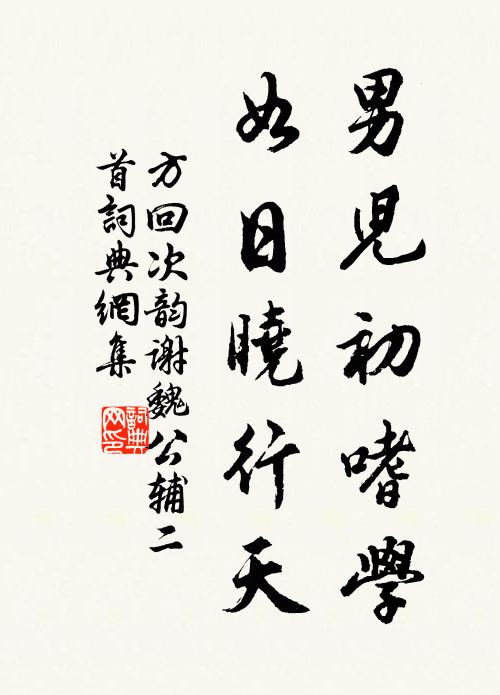 男兒初嗜學
如日曉行天
方回次韵谢魏公辅二
首詞典網集
詞典
网印